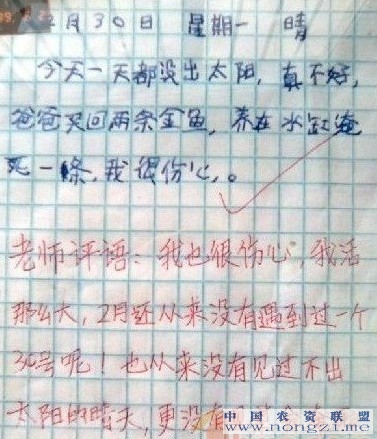 2月30日 星期一 晴
今天一天都没出太阳,真不好,
爸爸买回两条金鱼,养在水缸淹
死一條,我很伤心。
老师评语:我也很伤心,我活
那么大,2月还从来没有遇到过一个
30号呢!也从来没有见过不出
太阳的晴天,更没有
中国农资联盟
www.nongzi.me